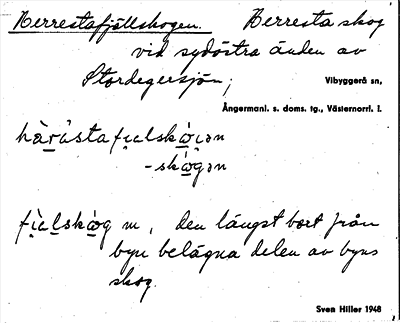 Herrestafjällskogen. Herresta skog
vid sydöstra änden av
Stordegersjön;
Vibyggerå sn,
Ångermanl. s. doms. tg., Västernorrl. l.
-skògən
fìalskòg m, den längst bort från
byn belägna delen av byns
skog.
Sven Hiller 1948